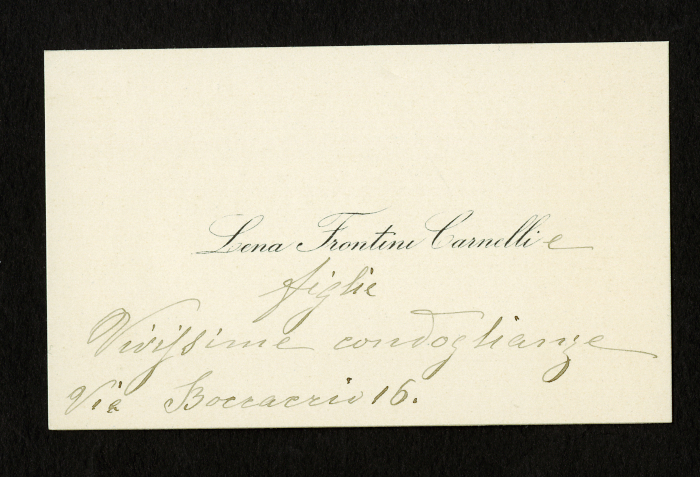 Lena Frontini Carnelli e
figlie
Vivissime condoglianze
Via Boccaccio 16.